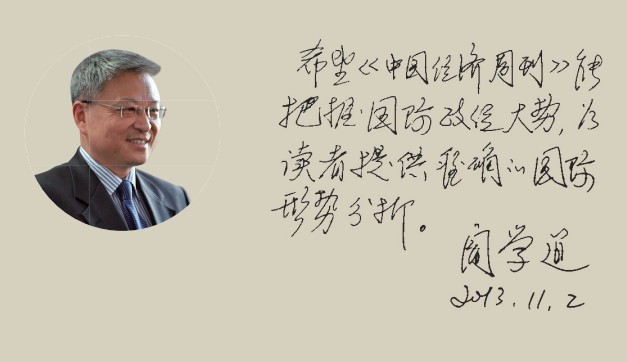 希望《中国经济周刊》能
把握国际政经大势,为
读者提供准确的国际
形势分析。
阎学通
2013.11.2